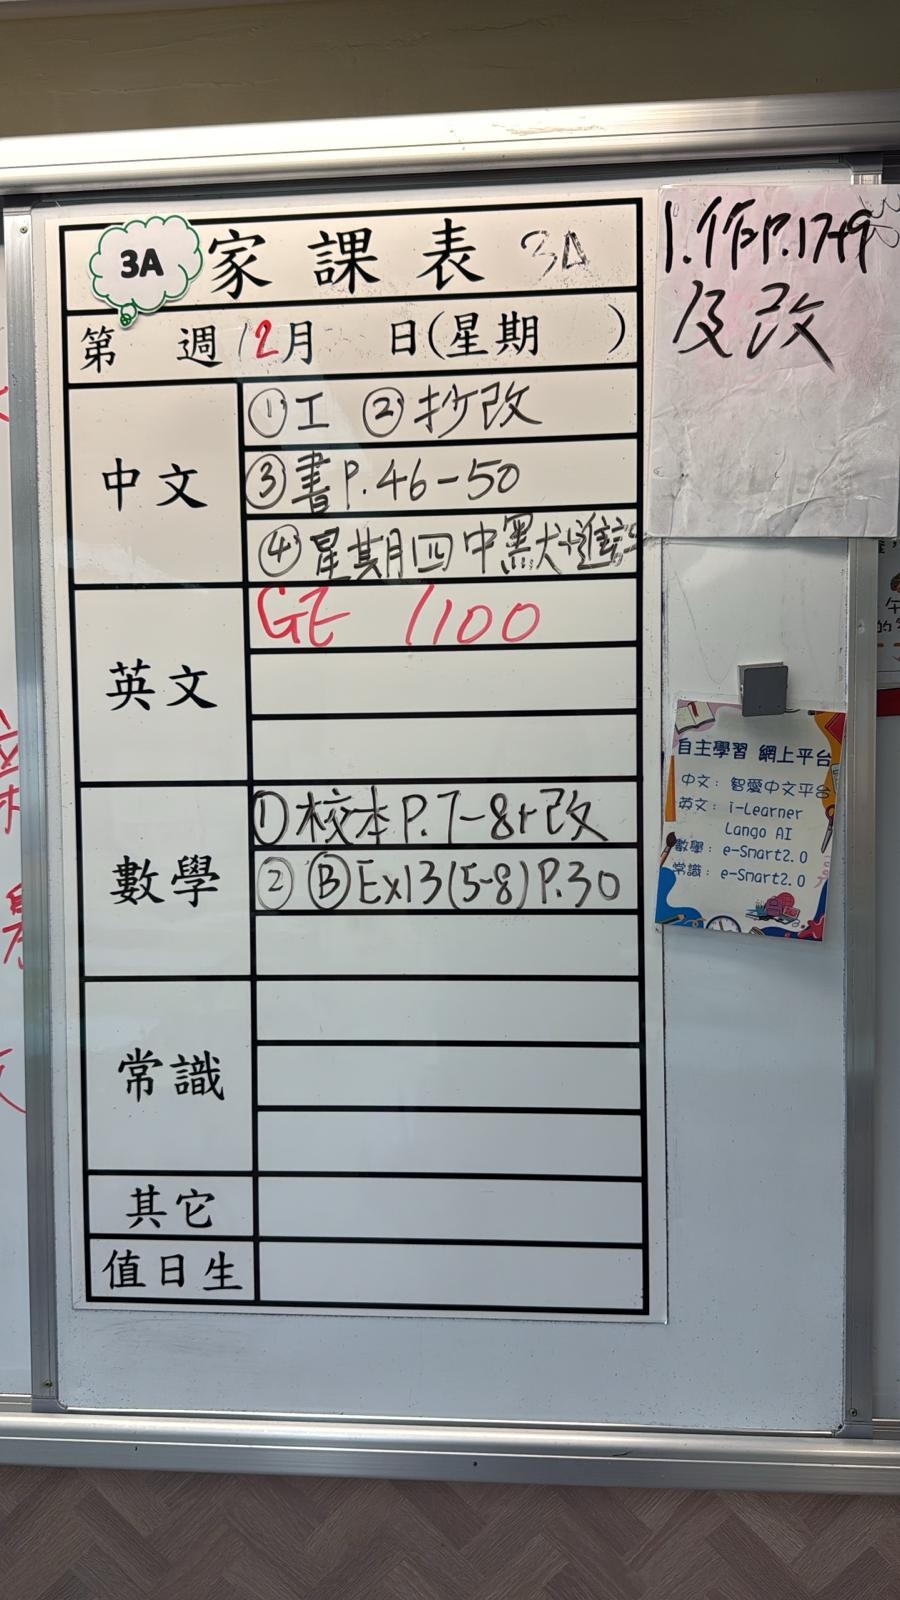 3A
家課表 3A
第 週 12月 日(星期 )
中文
①工 ②抄改
③書P.46-50
④星期四中默+進
英文
GE 1100
數學
①校本P.7-8+改
②ⒷEx13(5-8)P.30
常識
其它
值日生
1.作P.17+9
及改
自主學習 網上平台
中文：智愛中文平台
英文：i-Learner
Lango AI
數學：e-Smart2.0
常識：e-Smart2.0